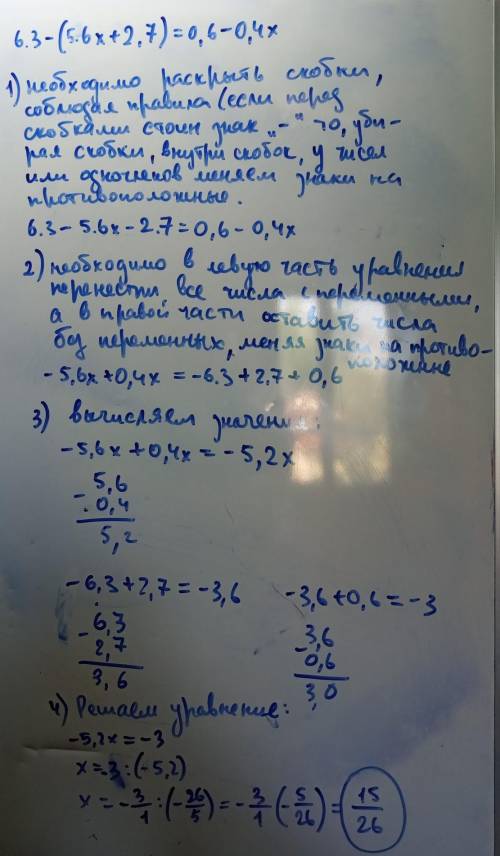 6.3-(5.6x+2,7)=0,6-0,4x
1) необходимо раскрыть скобки,
соблюдая правила (если перед
скобками стоит знак „-“ то, уби-
рая скобки, внутри скобок, у чисел
или одночленов меняем знаки на
противоположные.
6.3-5.6x-2.7=0,6-0,4x
2) необходимо в левую часть уравнения
перенести все числа с переменными,
а в правой части оставить числа
без переменных, меняя знаки на противо-
положные
-5,6x+0,4x=-6.3+2,7+0,6
3) вычисляем значения:
-5,6x+0,4x=-5,2x
5,6
- 0,4
5,2
-6,3+2,7=-3,6
-3,6+0,6=-3
6,3
- 2,7
3,6
3,6
- 0,6
3,0
4) Решаем уравнение:
-5,2x=-3
x=-3:(-5,2)
x=-3/1:(-26/5)=-3/1(-5/26)=15/26